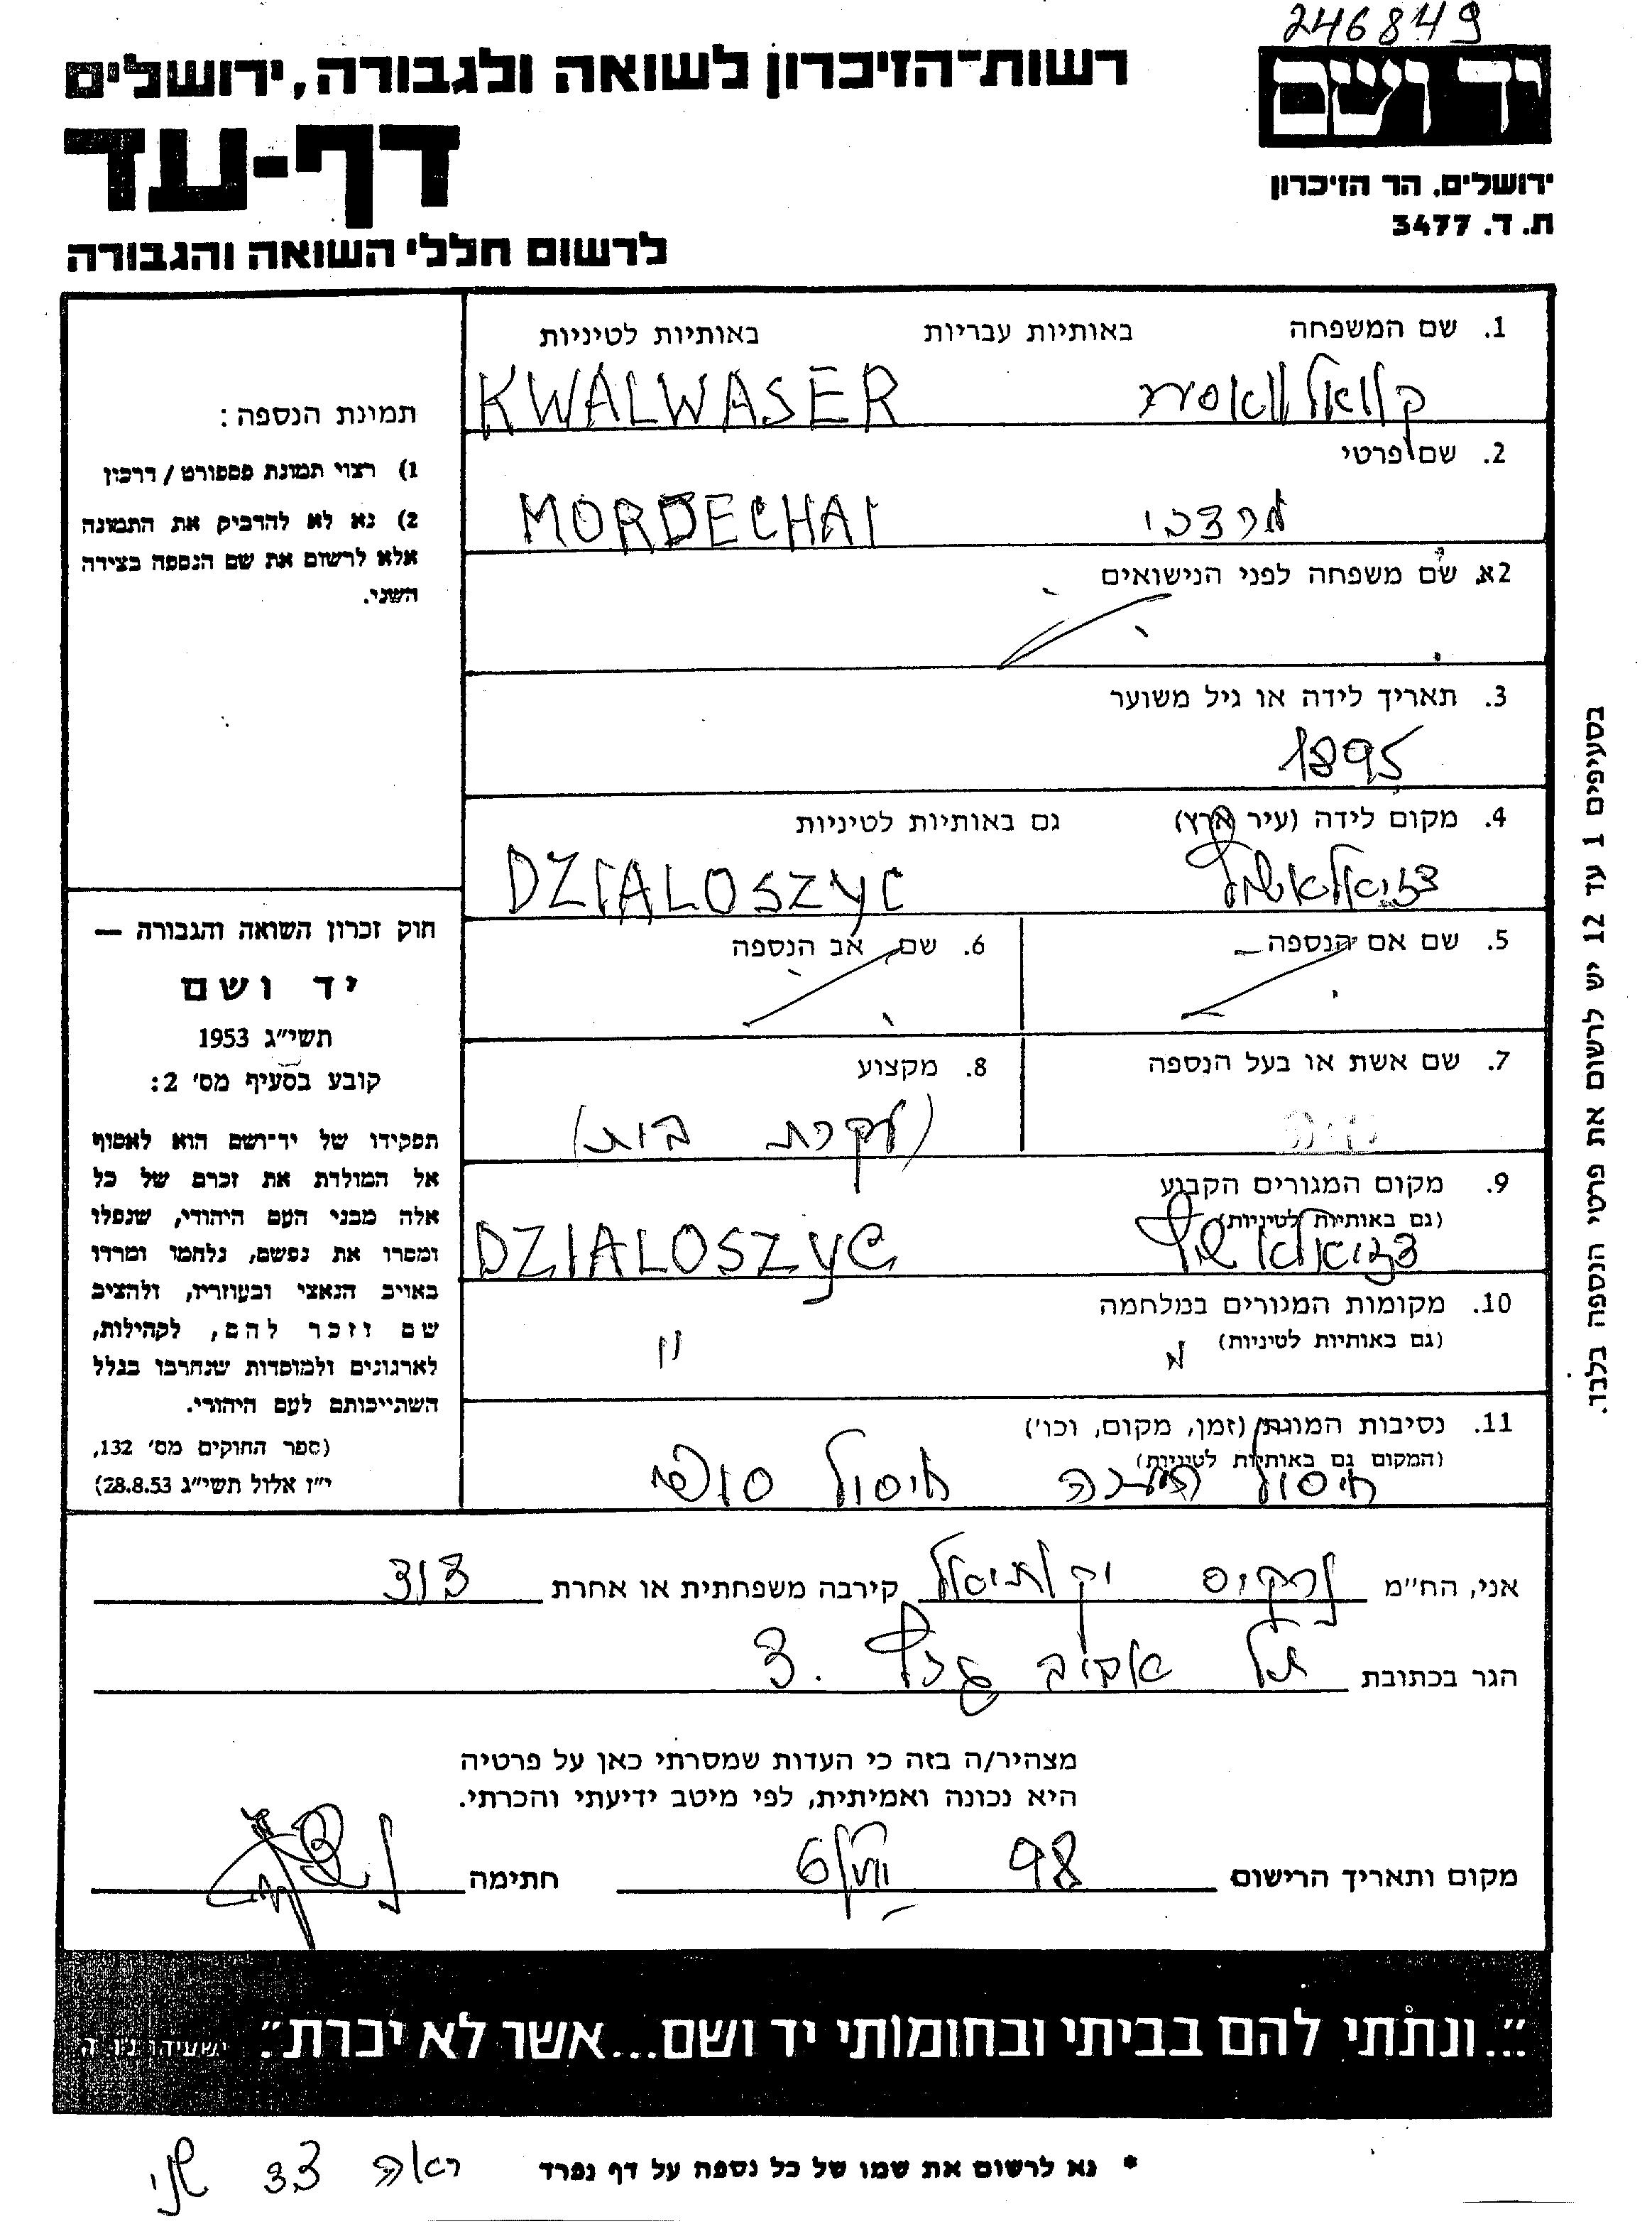 246849
רשות-הזיכרון לשואה ולגבורה, ירושלים
יד ושם
דף-עד
ירושלים, הר הזיכרון
ת. ד. 3477
לרשום חללי השואה והגבורה
1. שם המשפחה באותיות עבריות באותיות לטיניות
קוואלוואסער KWALWASER
2. שם פרטי
מרדכי MORDECHAI
2א. שם משפחה לפני הנישואים
3. תאריך לידה או גיל משוער
1895
4. מקום לידה (עיר ארץ) גם באותיות לטיניות
DZIALOSZYC
5. שם אם הנספה 6. שם אב הנספה
7. שם אשת או בעל הנספה 8. מקצוע
(עקרת בית)
9. מקום המגורים הקבוע
(גם באותיות לטיניות)
DZIALOSZYC
10. מקומות המגורים במלחמה
(גם באותיות לטיניות)
11. נסיבות המוות (זמן, מקום, וכו')
(המקום גם באותיות לטיניות)
חיסול חיסול סופי
תמונת הנספה:
1) רצוי תמונת פספורט / דרכון
2) נא לא להדביק את התמונה
אלא לרשום את שם הנספה בצידה
השני.
חוק זכרון השואה והגבורה —
יד ושם
תשי"ג 1953
קובע בסעיף מס' 2:
תפקידו של יד-ושם הוא לאסוף
אל המולדת את זכרם של כל
אלה מבני העם היהודי, שנפלו
ומסרו את נפשם, נלחמו ומרדו
באויב הנאצי ובעוזריו, ולהציב
שם וזכר להם, לקהילות,
לארגונים ולמוסדות שנחרבו בגלל
השתייכותם לעם היהודי.
(ספר החוקים מס' 132,
י"ז אלול תשי"ג 28.8.53)
בסעיפים 1 עד 12 יש לרשום את פרטי הנספה בלבד.
אני, הח"מ נרקיס יקותיאל קירבה משפחתית או אחרת דוד
הגר בכתובת תל אביב
מצהיר/ה בזה כי העדות שמסרתי כאן על פרטיה
היא נכונה ואמיתית, לפי מיטב ידיעתי והכרתי.
מקום ותאריך הרישום 98 חתימה
"...ונתתי להם בביתי ובחומותי יד ושם...אשר לא יכרת". ישעיהו נ"ו ה'
* נא לרשום את שמו של כל נספה על דף נפרד
ראה צד שני